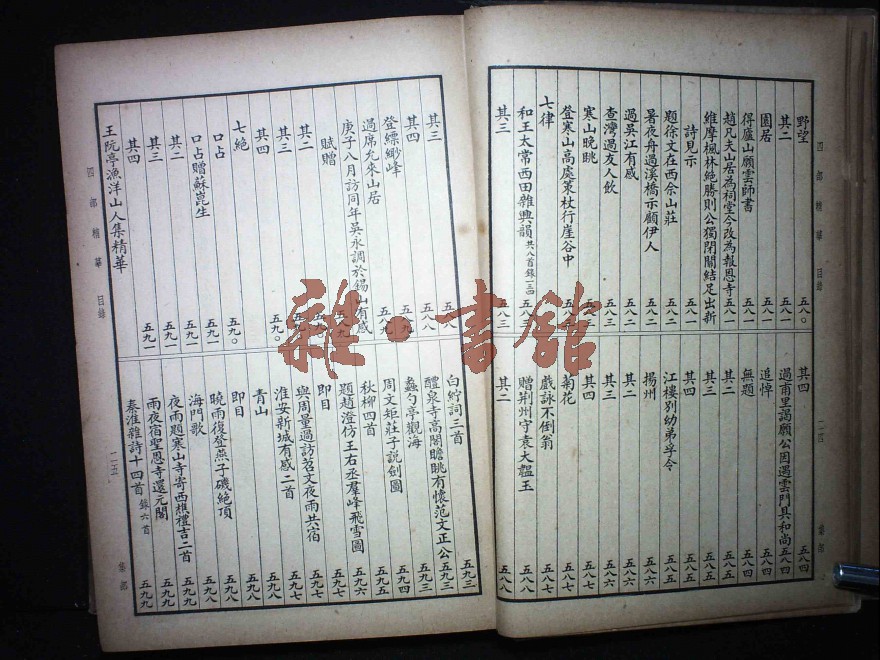 四部精華 目錄 二四 集部
野望 五八〇
其二 五八一
園居 五八一
得廬山願雲師書 五八一
趙凡夫山居為祠堂今改為報恩寺 五八一
維摩楓林絶勝則公獨閉關結足出新
詩見示 五八一
題徐文在西佘山莊 五八二
暑夜舟過溪橋示顧伊人 五八二
過吳江有感 五八二
查灣過友人飲
寒山晚眺
登寒山高處策杖行崖谷中
七律
和王太常西田雜興韻 共八首錄一三四 五八三
其三 五八三
其四 五八四
過甫里謁願公因遇雲門具和尚 五八四
追悼 五八四
無題 五八四
其二 五八五
其三 五八五
其四 五八五
江樓別幼弟孚令 五八五
揚州 五八六
其二 五八六
其三 五八六
其四 五八七
菊花 五八七
戲詠不倒翁 五八七
贈荆州守袁大韞玉 五八八
其二 五八八
其三
其四 五八八
登縹緲峰 五八九
過席允來山居
庚子八月訪同年吳永調於錫山有感
賦贈
其二
其三
其四 五九〇
七絶
口占 五九〇
口占贈蘇崑生 五九一
其二 五九一
其三 五九一
其四 五九一
王阮亭漁洋山人集精華
四部精華 目錄 二五 集部
白紵詞三首 五九三
醴泉寺高閣瞻眺有懷范文正公 五九三
蠡勺亭觀海 五九四
周文矩莊子説劍圖 五九五
秋柳四首 五九六
題趙澄仿王右丞羣峰飛雪圖 五九七
即目 五九七
與周量過訪苕文夜雨共宿 五九七
淮安新城有感二首 五九八
青山 五九八
即目 五九八
曉雨復登燕子磯絶頂 五九八
海門歌 五九九
夜雨題寒山寺寄西樵禮吉二首 五九九
雨夜宿聖恩寺還元閣 五九九
秦淮雜詩十四首 錄六首 五九九
雜·書館